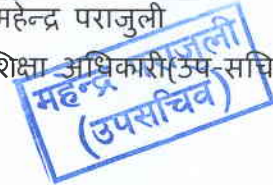 महेन्द्र पराजुली
शिक्षा अधिकारी(उप-सचि
महेन्द्र पराजुली
(उपसचिव)